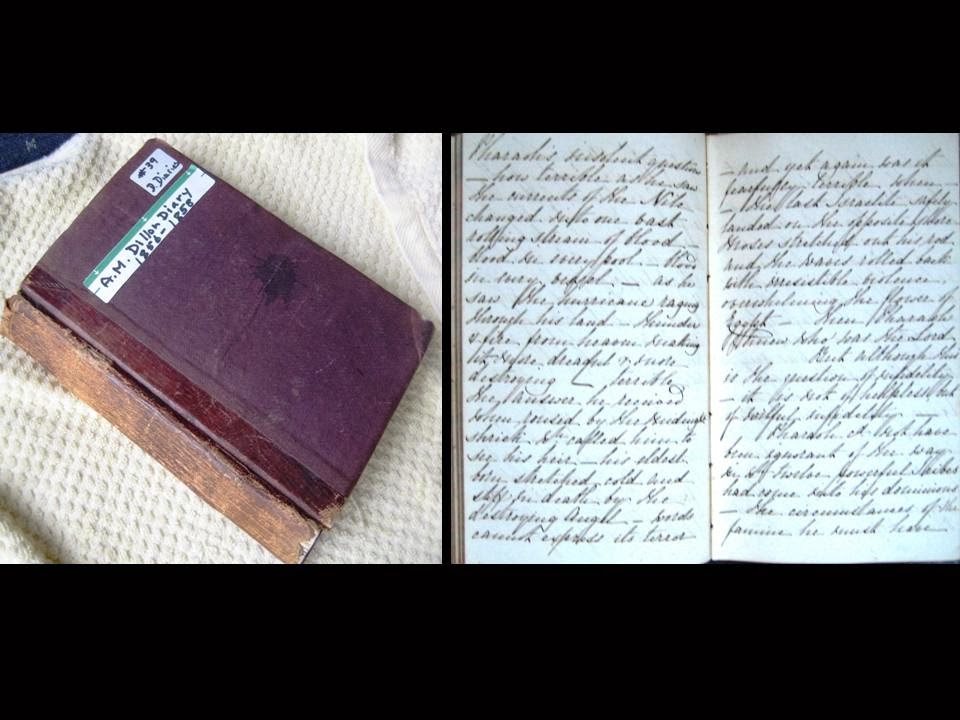 #39
D. Diaries
A.M. Dillon Diary
1856-1858
Pharaoh's insolent question
– how terrible as he saw
the currents of the Nile
changed into one vast
rolling stream of blood –
blood in every pool – blood
in every vessel – as he
saw the hurricane raging
through his land – thunder
& fire from heaven making
it more dreadful & more
destroying – terrible
the answer he received
when roused by the midnight
shriek that called him to
see his heir – his eldest
born stretched cold and
stiff in death by the
destroying Angel – Words
cannot express its terror
– and yet again was it
fearfully terrible when –
the last Israelite safely
landed on the opposite shore
Moses stretched out his rod
and the waves rolled back
with irresistible violence
overwhelming the flower of
Egypt – then Pharaoh
knew who was the Lord
But although this
is the question of infidelity
– it is not of helpless but
of willful infidelity –
Pharaoh cd not have
been ignorant of the way
in wh twelve powerful tribes
had come into his dominions
– the circumstances of the
famine he must have